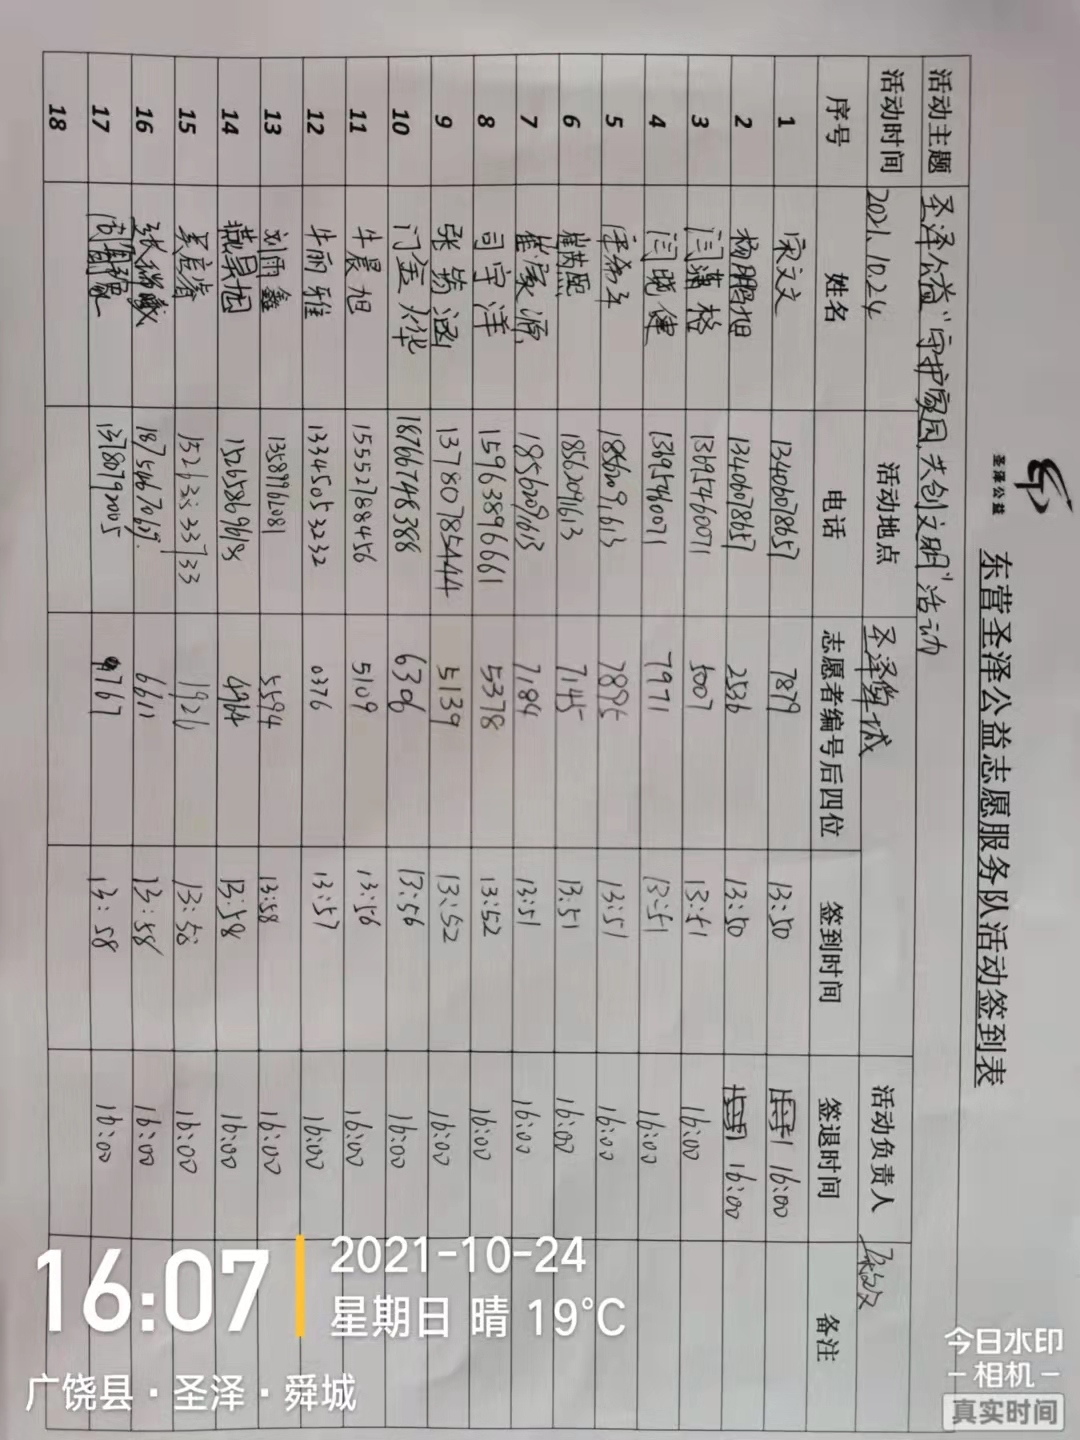 圣泽公益
东营圣泽公益志愿服务队活动签到表
活动主题 圣泽公益"守护家园,共创文明"活动
活动时间 2021.10.24 活动地点 圣泽舜城 活动负责人
序号 姓名 电话 志愿者编号后四位 签到时间 签退时间 备注
1 宋文文 13406078657 7879 13:50 16:00
2 杨鹏旭 13406078657 2536 13:50 16:00
3 闫潇格 13695460071 5007 13:51 16:00
4 闫晓健 13695460071 7971 13:51 16:00
5 18562091613 7895 13:51 16:00
6 崔茂熙 18562091613 7145 13:51 16:00
7 崔溪源 18562091613 7184 13:51 16:00
8 司宇洋 15963896661 5378 13:52 16:00
9 张芴涵 13780785444 5139 13:52 16:00
10 门金烨 18766748388 6306 13:56 16:00
11 牛晨旭 15552788456 5109 13:56 16:00
12 牛雨雅 13345053232 0376 13:57 16:00
13 刘雨鑫 13589962081 5594 13:58 16:00
14 燕昊旭 15265869698 4964 13:58 16:00
15 吴启睿 15263233733 1926 13:58 16:00
16 18754667069 6611 13:58 16:00
17 13780792005 9767 13:58 16:00
18
16:07
2021-10-24
星期日 晴 19°C
广饶县·圣泽·舜城
今日水印
相机
真实时间